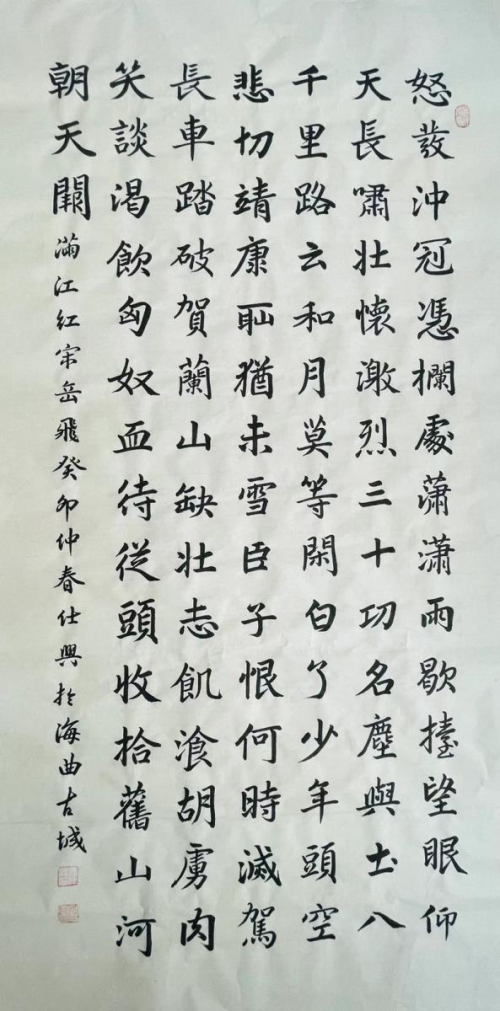 怒發沖冠憑欄處瀟瀟雨歇擡望眼仰
天長嘯壯懷激烈三十功名塵與土八
千里路云和月莫等閑白了少年頭空
悲切靖康耻猶未雪臣子恨何時滅駕
長車踏破賀蘭山缺壯志飢湌胡虜肉
笑談渴飲匈奴血待從頭收拾舊山河
朝天闕 滿江紅宋岳飛癸卯仲春仕興於海曲古城